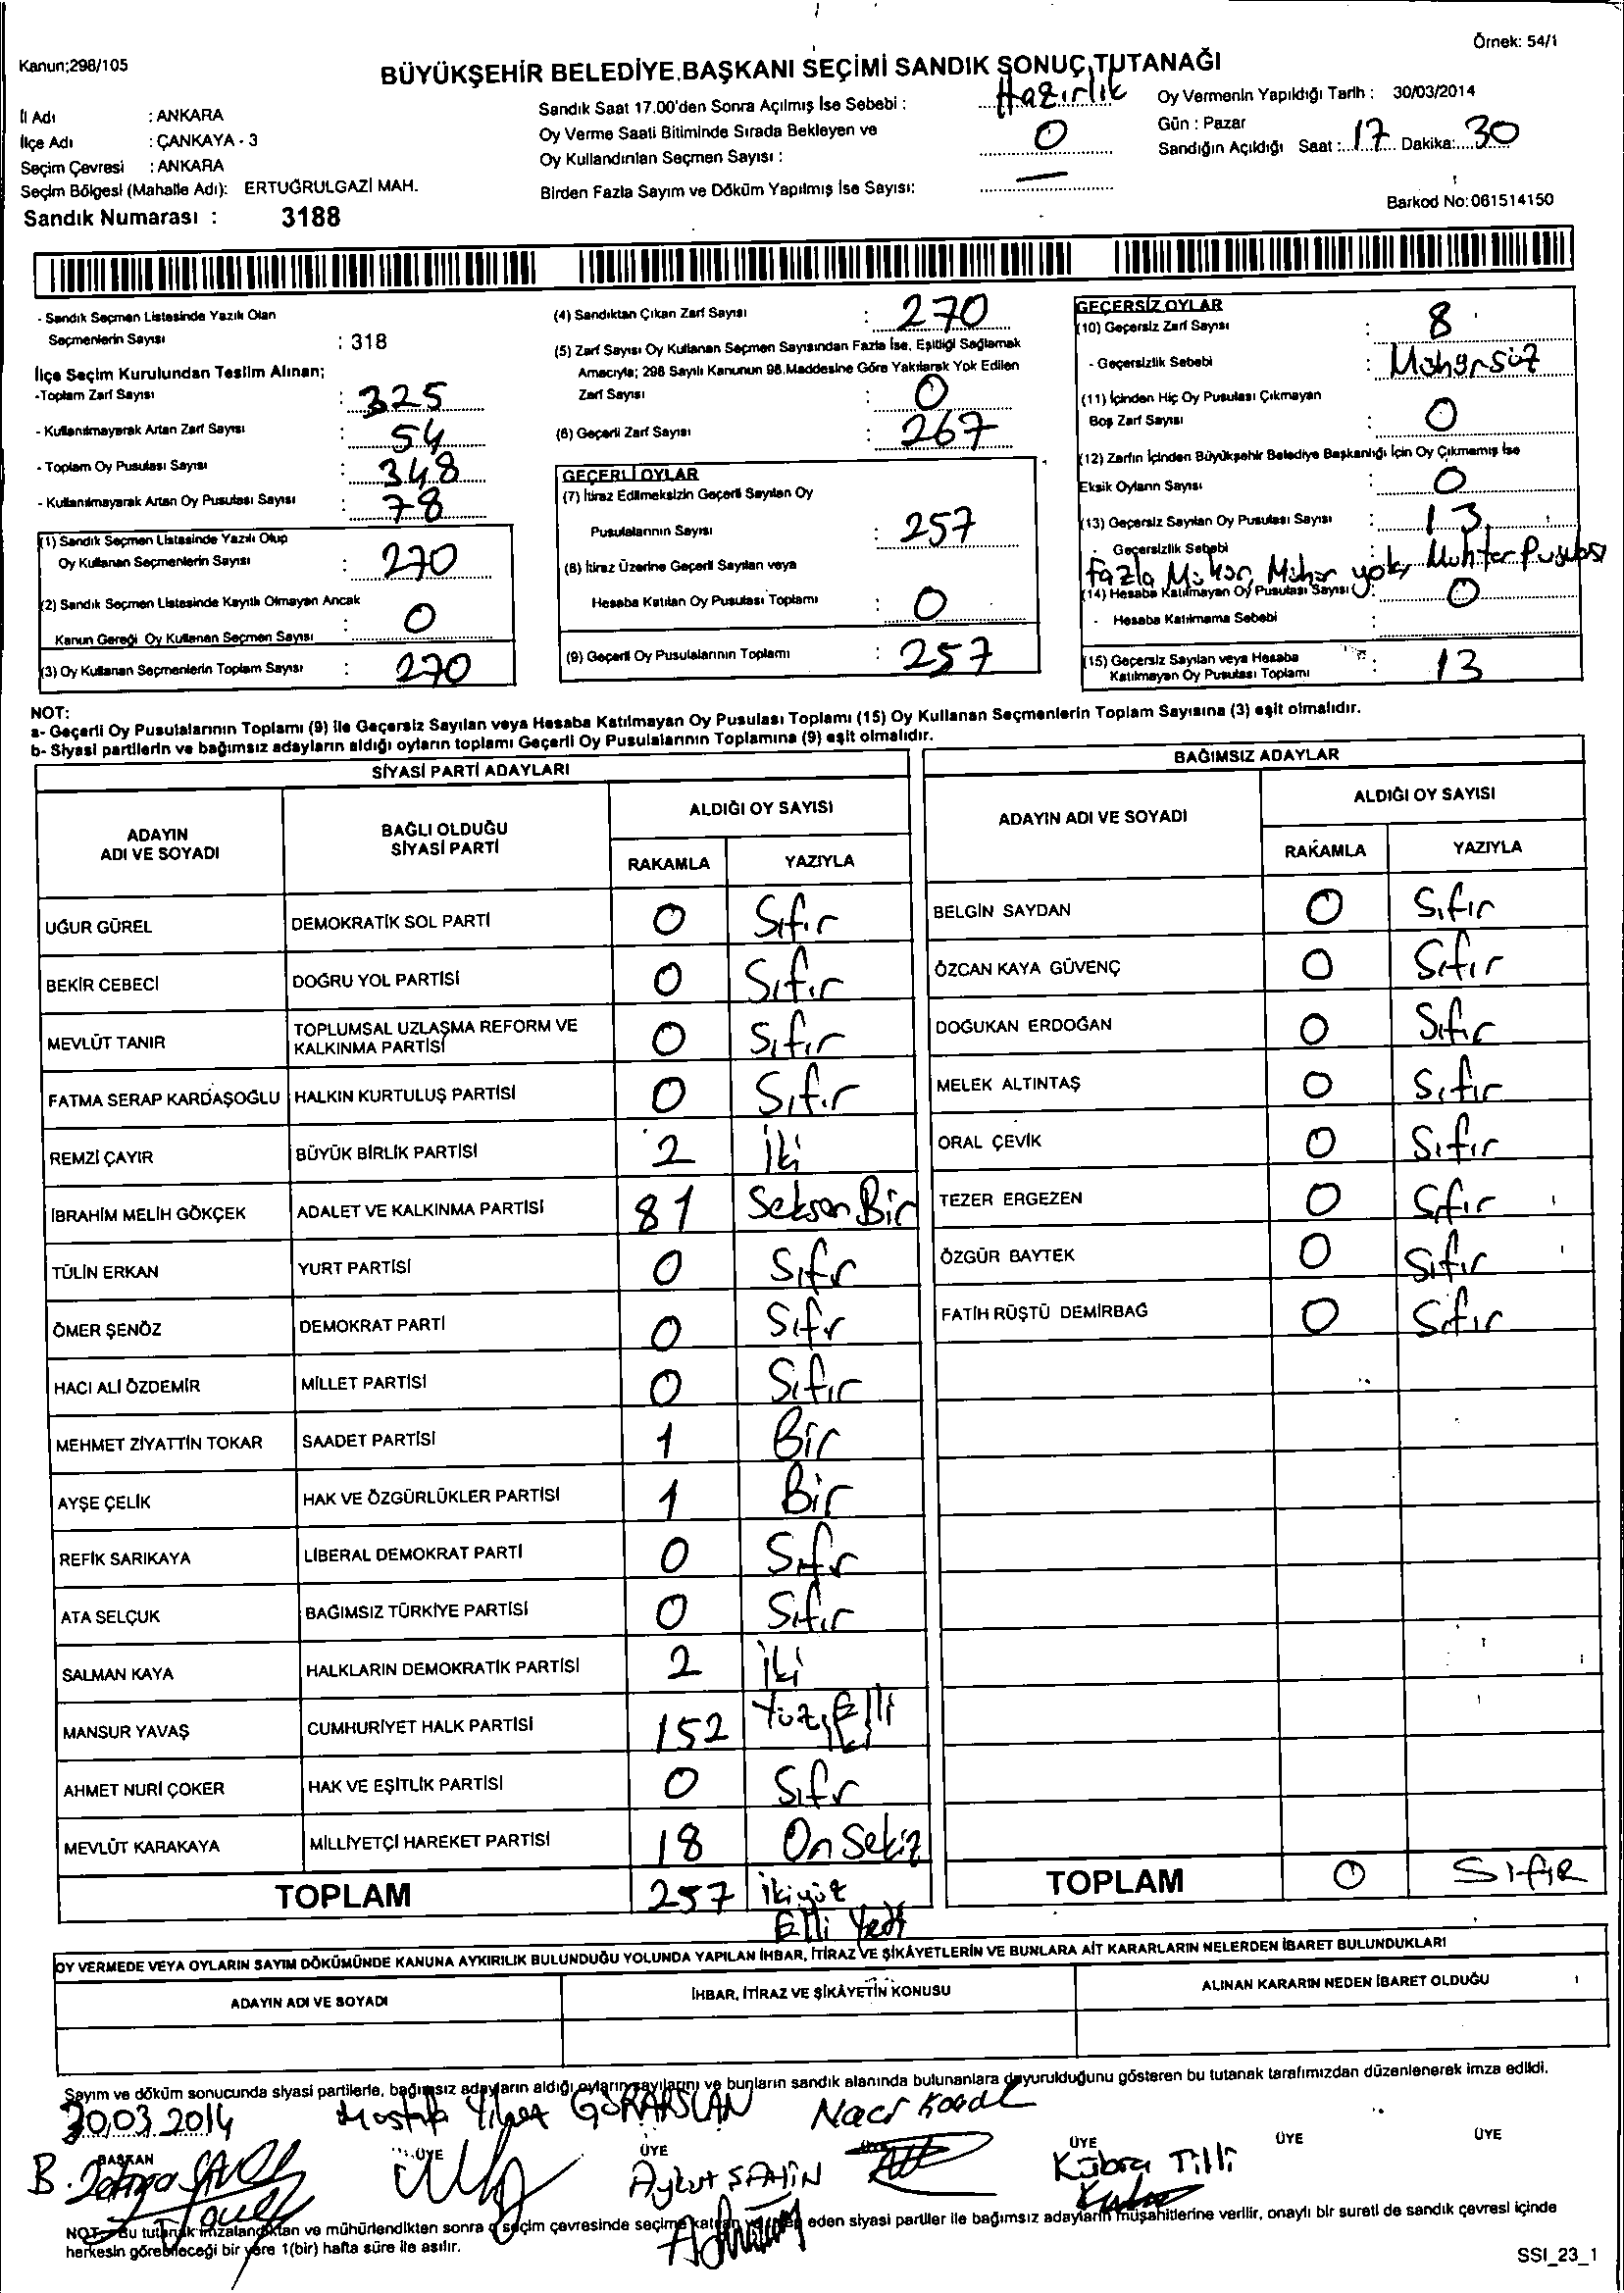 Örnek: 54/1
Kanun;298/105
BÜYÜKŞEHİR BELEDİYE BAŞKANI SEÇİMİ SANDIK SONUÇ TUTANAĞI
İl Adı : ANKARA
İlçe Adı : ÇANKAYA - 3
Seçim Çevresi : ANKARA
Seçim Bölgesi (Mahalle Adı): ERTUĞRULGAZİ MAH.
Sandık Numarası : 3188
Sandık Saat 17.00'den Sonra Açılmış İse Sebebi : Hazırlık
Oy Verme Saati Bitiminde Sırada Bekleyen ve
Oy Kullandırılan Seçmen Sayısı : 0
Birden Fazla Sayım ve Döküm Yapılmış İse Sayısı: —
Oy Vermenin Yapıldığı Tarih : 30/03/2014
Gün : Pazar
Sandığın Açıldığı Saat : 17 Dakika: 30
Barkod No:061514150
- Sandık Seçmen Listesinde Yazılı Olan
Seçmenlerin Sayısı : 318
İlçe Seçim Kurulundan Teslim Alınan;
-Toplam Zarf Sayısı : 325
- Kullanılmayarak Artan Zarf Sayısı : 54
- Toplam Oy Pusulası Sayısı : 348
- Kullanılmayarak Artan Oy Pusulası Sayısı : 78
(1) Sandık Seçmen Listesinde Yazılı Olup
Oy Kullanan Seçmenlerin Sayısı : 270
(2) Sandık Seçmen Listesinde Kayıtlı Olmayan Ancak
Kanun Gereği Oy Kullanan Seçmen Sayısı : 0
(3) Oy Kullanan Seçmenlerin Toplam Sayısı : 270
(4) Sandıktan Çıkan Zarf Sayısı : 270
(5) Zarf Sayısı Oy Kullanan Seçmen Sayısından Fazla İse, Eşitliği Sağlamak
Amacıyla; 298 Sayılı Kanunun 98.Maddesine Göre Yakılarak Yok Edilen
Zarf Sayısı : 0
(6) Geçerli Zarf Sayısı : 267
GEÇERLİ OYLAR
(7) İtiraz Edilmeksizin Geçerli Sayılan Oy
Pusulalarının Sayısı : 257
(8) İtiraz Üzerine Geçerli Sayılan veya
Hesaba Katılan Oy Pusulası Toplamı : 0
(9) Geçerli Oy Pusulalarının Toplamı : 257
GEÇERSİZ OYLAR
(10) Geçersiz Zarf Sayısı : 8
- Geçersizlik Sebebi : Mühürsüz
(11) İçinden Hiç Oy Pusulası Çıkmayan
Boş Zarf Sayısı : 0
(12) Zarfın İçinden Büyükşehir Belediye Başkanlığı İçin Oy Çıkmamış İse
Eksik Oyların Sayısı : 0
(13) Geçersiz Sayılan Oy Pusulası Sayısı : 13
- Geçersizlik Sebebi : Fazla Mühür, Mühür yok, Muhtar Pusulası
(14) Hesaba Katılmayan Oy Pusulası Sayısı : 0
- Hesaba Katılmama Sebebi :
(15) Geçersiz Sayılan veya Hesaba
Katılmayan Oy Pusulası Toplamı : 13
NOT:
a- Geçerli Oy Pusulalarının Toplamı (9) ile Geçersiz Sayılan veya Hesaba Katılmayan Oy Pusulası Toplamı (15) Oy Kullanan Seçmenlerin Toplam Sayısına (3) eşit olmalıdır.
b- Siyasi partilerin ve bağımsız adayların aldığı oyların toplamı Geçerli Oy Pusulalarının Toplamına (9) eşit olmalıdır.
SİYASİ PARTİ ADAYLARI
ADAYIN ADI VE SOYADI BAĞLI OLDUĞU SİYASİ PARTİ ALDIĞI OY SAYISI
RAKAMLA YAZIYLA
UĞUR GÜREL DEMOKRATİK SOL PARTİ 0 Sıfır
BEKİR CEBECİ DOĞRU YOL PARTİSİ 0 Sıfır
MEVLÜT TANIR TOPLUMSAL UZLAŞMA REFORM VE KALKINMA PARTİSİ 0 Sıfır
FATMA SERAP KARDAŞOĞLU HALKIN KURTULUŞ PARTİSİ 0 Sıfır
REMZİ ÇAYIR BÜYÜK BİRLİK PARTİSİ 2 İki
İBRAHİM MELİH GÖKÇEK ADALET VE KALKINMA PARTİSİ 81 Seksen Bir
TÜLİN ERKAN YURT PARTİSİ 0 Sıfır
ÖMER ŞENÖZ DEMOKRAT PARTİ 0 Sıfır
HACI ALİ ÖZDEMİR MİLLET PARTİSİ 0 Sıfır
MEHMET ZİYATTİN TOKAR SAADET PARTİSİ 1 Bir
AYŞE ÇELİK HAK VE ÖZGÜRLÜKLER PARTİSİ 1 Bir
REFİK SARIKAYA LİBERAL DEMOKRAT PARTİ 0 Sıfır
ATA SELÇUK BAĞIMSIZ TÜRKİYE PARTİSİ 0 Sıfır
SALMAN KAYA HALKLARIN DEMOKRATİK PARTİSİ 2 İki
MANSUR YAVAŞ CUMHURİYET HALK PARTİSİ 152 Yüz Elli İki
AHMET NURİ ÇOKER HAK VE EŞİTLİK PARTİSİ 0 Sıfır
MEVLÜT KARAKAYA MİLLİYETÇİ HAREKET PARTİSİ 18 On Sekiz
TOPLAM 257 İkiyüz Elli Yedi
BAĞIMSIZ ADAYLAR
ADAYIN ADI VE SOYADI ALDIĞI OY SAYISI
RAKAMLA YAZIYLA
BELGİN SAYDAN 0 Sıfır
ÖZCAN KAYA GÜVENÇ 0 Sıfır
DOĞUKAN ERDOĞAN 0 Sıfır
MELEK ALTINTAŞ 0 Sıfır
ORAL ÇEVİK 0 Sıfır
TEZER ERGEZEN 0 Sıfır
ÖZGÜR BAYTEK 0 Sıfır
FATİH RÜŞTÜ DEMİRBAĞ 0 Sıfır
TOPLAM 0 SIFIR
OY VERMEDE VEYA OYLARIN SAYIM DÖKÜMÜNDE KANUNA AYKIRILIK BULUNDUĞU YOLUNDA YAPILAN İHBAR, İTİRAZ VE ŞİKÂYETLERİN VE BUNLARA AİT KARARLARIN NELERDEN İBARET BULUNDUKLARI
ADAYIN ADI VE SOYADI İHBAR, İTİRAZ VE ŞİKÂYETİN KONUSU ALINAN KARARIN NEDEN İBARET OLDUĞU
Sayım ve döküm sonucunda siyasi partilerle, bağımsız adayların aldığı oyların sayılarını ve bunların sandık alanında bulunanlara duyurulduğunu gösteren bu tutanak tarafımızdan düzenlenerek imza edildi.
30.03.2014 Mustafa GÖRARSLAN Naci
BAŞKAN ÜYE ÜYE ÜYE ÜYE ÜYE ÜYE
B. Aykut ŞAHİN Kübra Tilli
NOT: Bu tutanak imzalandıktan ve mühürlendikten sonra o seçim çevresinde seçime katılan eden siyasi partiler ile bağımsız adayların müşahitlerine verilir, onaylı bir sureti de sandık çevresi içinde
herkesin görebileceği bir yere 1(bir) hafta süre ile asılır.
SSI_23_1